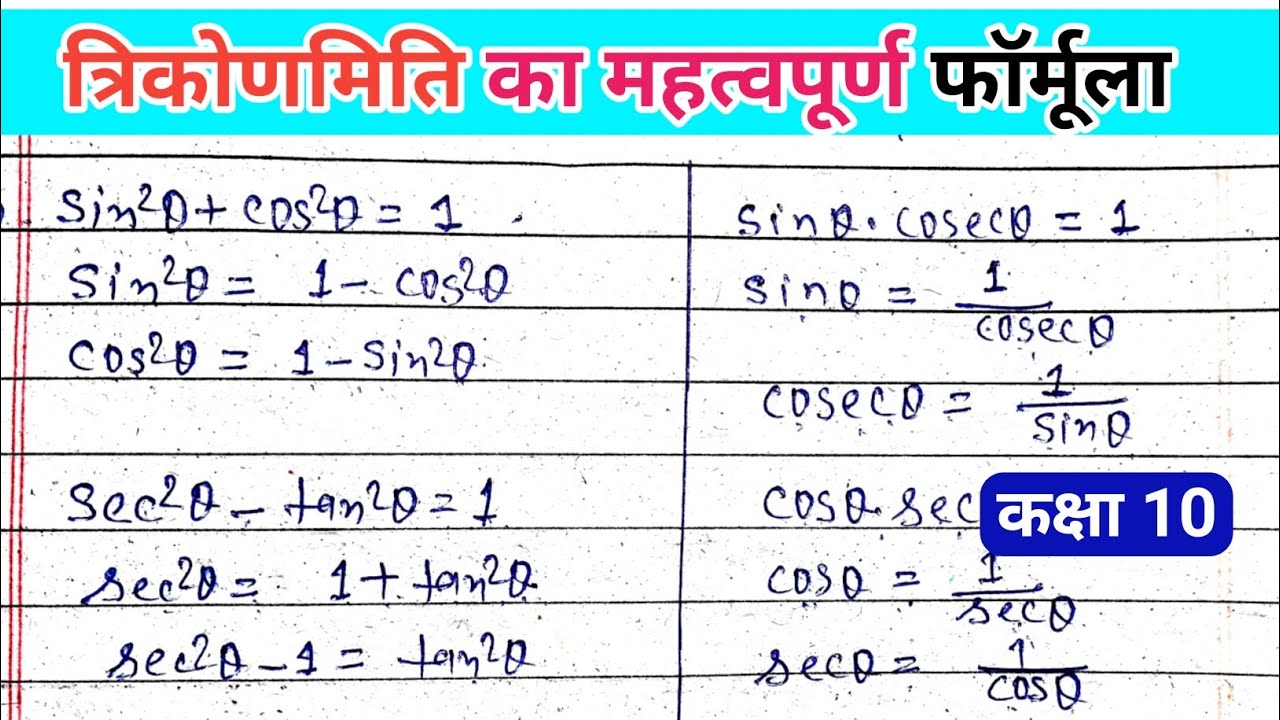 त्रिकोणमिति का महत्वपूर्ण फॉर्मूला
sin²θ + cos²θ = 1
sin²θ = 1 - cos²θ
cos²θ = 1 - sin²θ
sec²θ - tan²θ = 1
sec²θ = 1 + tan²θ
sec²θ - 1 = tan²θ
sinθ · cosecθ = 1
sinθ = 1/cosecθ
cosecθ = 1/sinθ
cosθ · sec
कक्षा 10
cosθ = 1/secθ
secθ = 1/cosθ